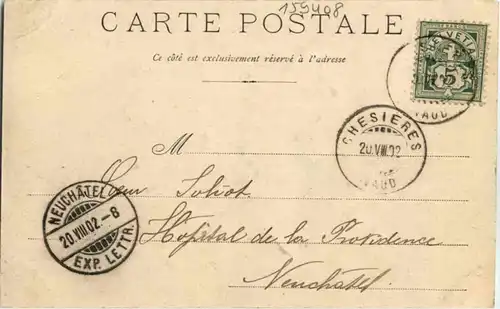 159408
CARTE POSTALE
Ce côté est exclusivement réservé à l'adresse
HELVETIA
5
VAUD
CHESIERES
20.VIII.02
VAUD
M
NEUCHÂTEL
20.VIII.02.-8
EXP. LETTR.
Sœur
Hôpital de la Providence
Neuchâtel.